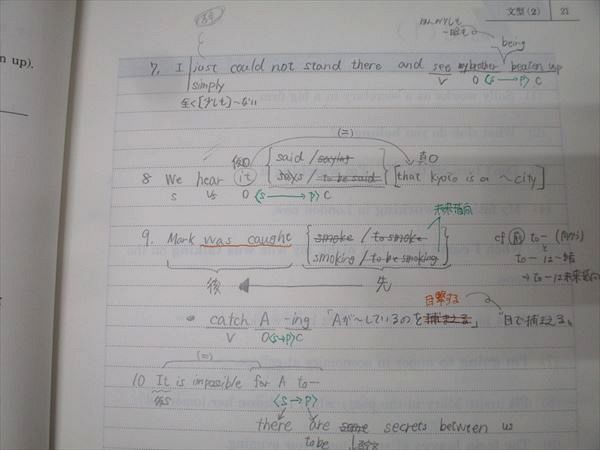 文型(2) 21
being
7. I just could not stand there and see my brother beaten up
simply V O <S→P> C
全く[少しも]~ない
(=)
仮O 真O
said / saying
8 We hear it says / to be said [that Kyoto is a ~city]
S Vs O <S→P> C
未来指向
9. Mark was caught smoke / to smoke
smoking / to be smoking
cf
後 ← 先
→ to-は未来指向
目撃する
catch A -ing 「Aが~しているのを捕まえる」 "目で捕まえる"
V O<S→P>C
(=)
10 It is impossible for A to-
仮S <S→P>
there are some secrets between us
to be
n up).